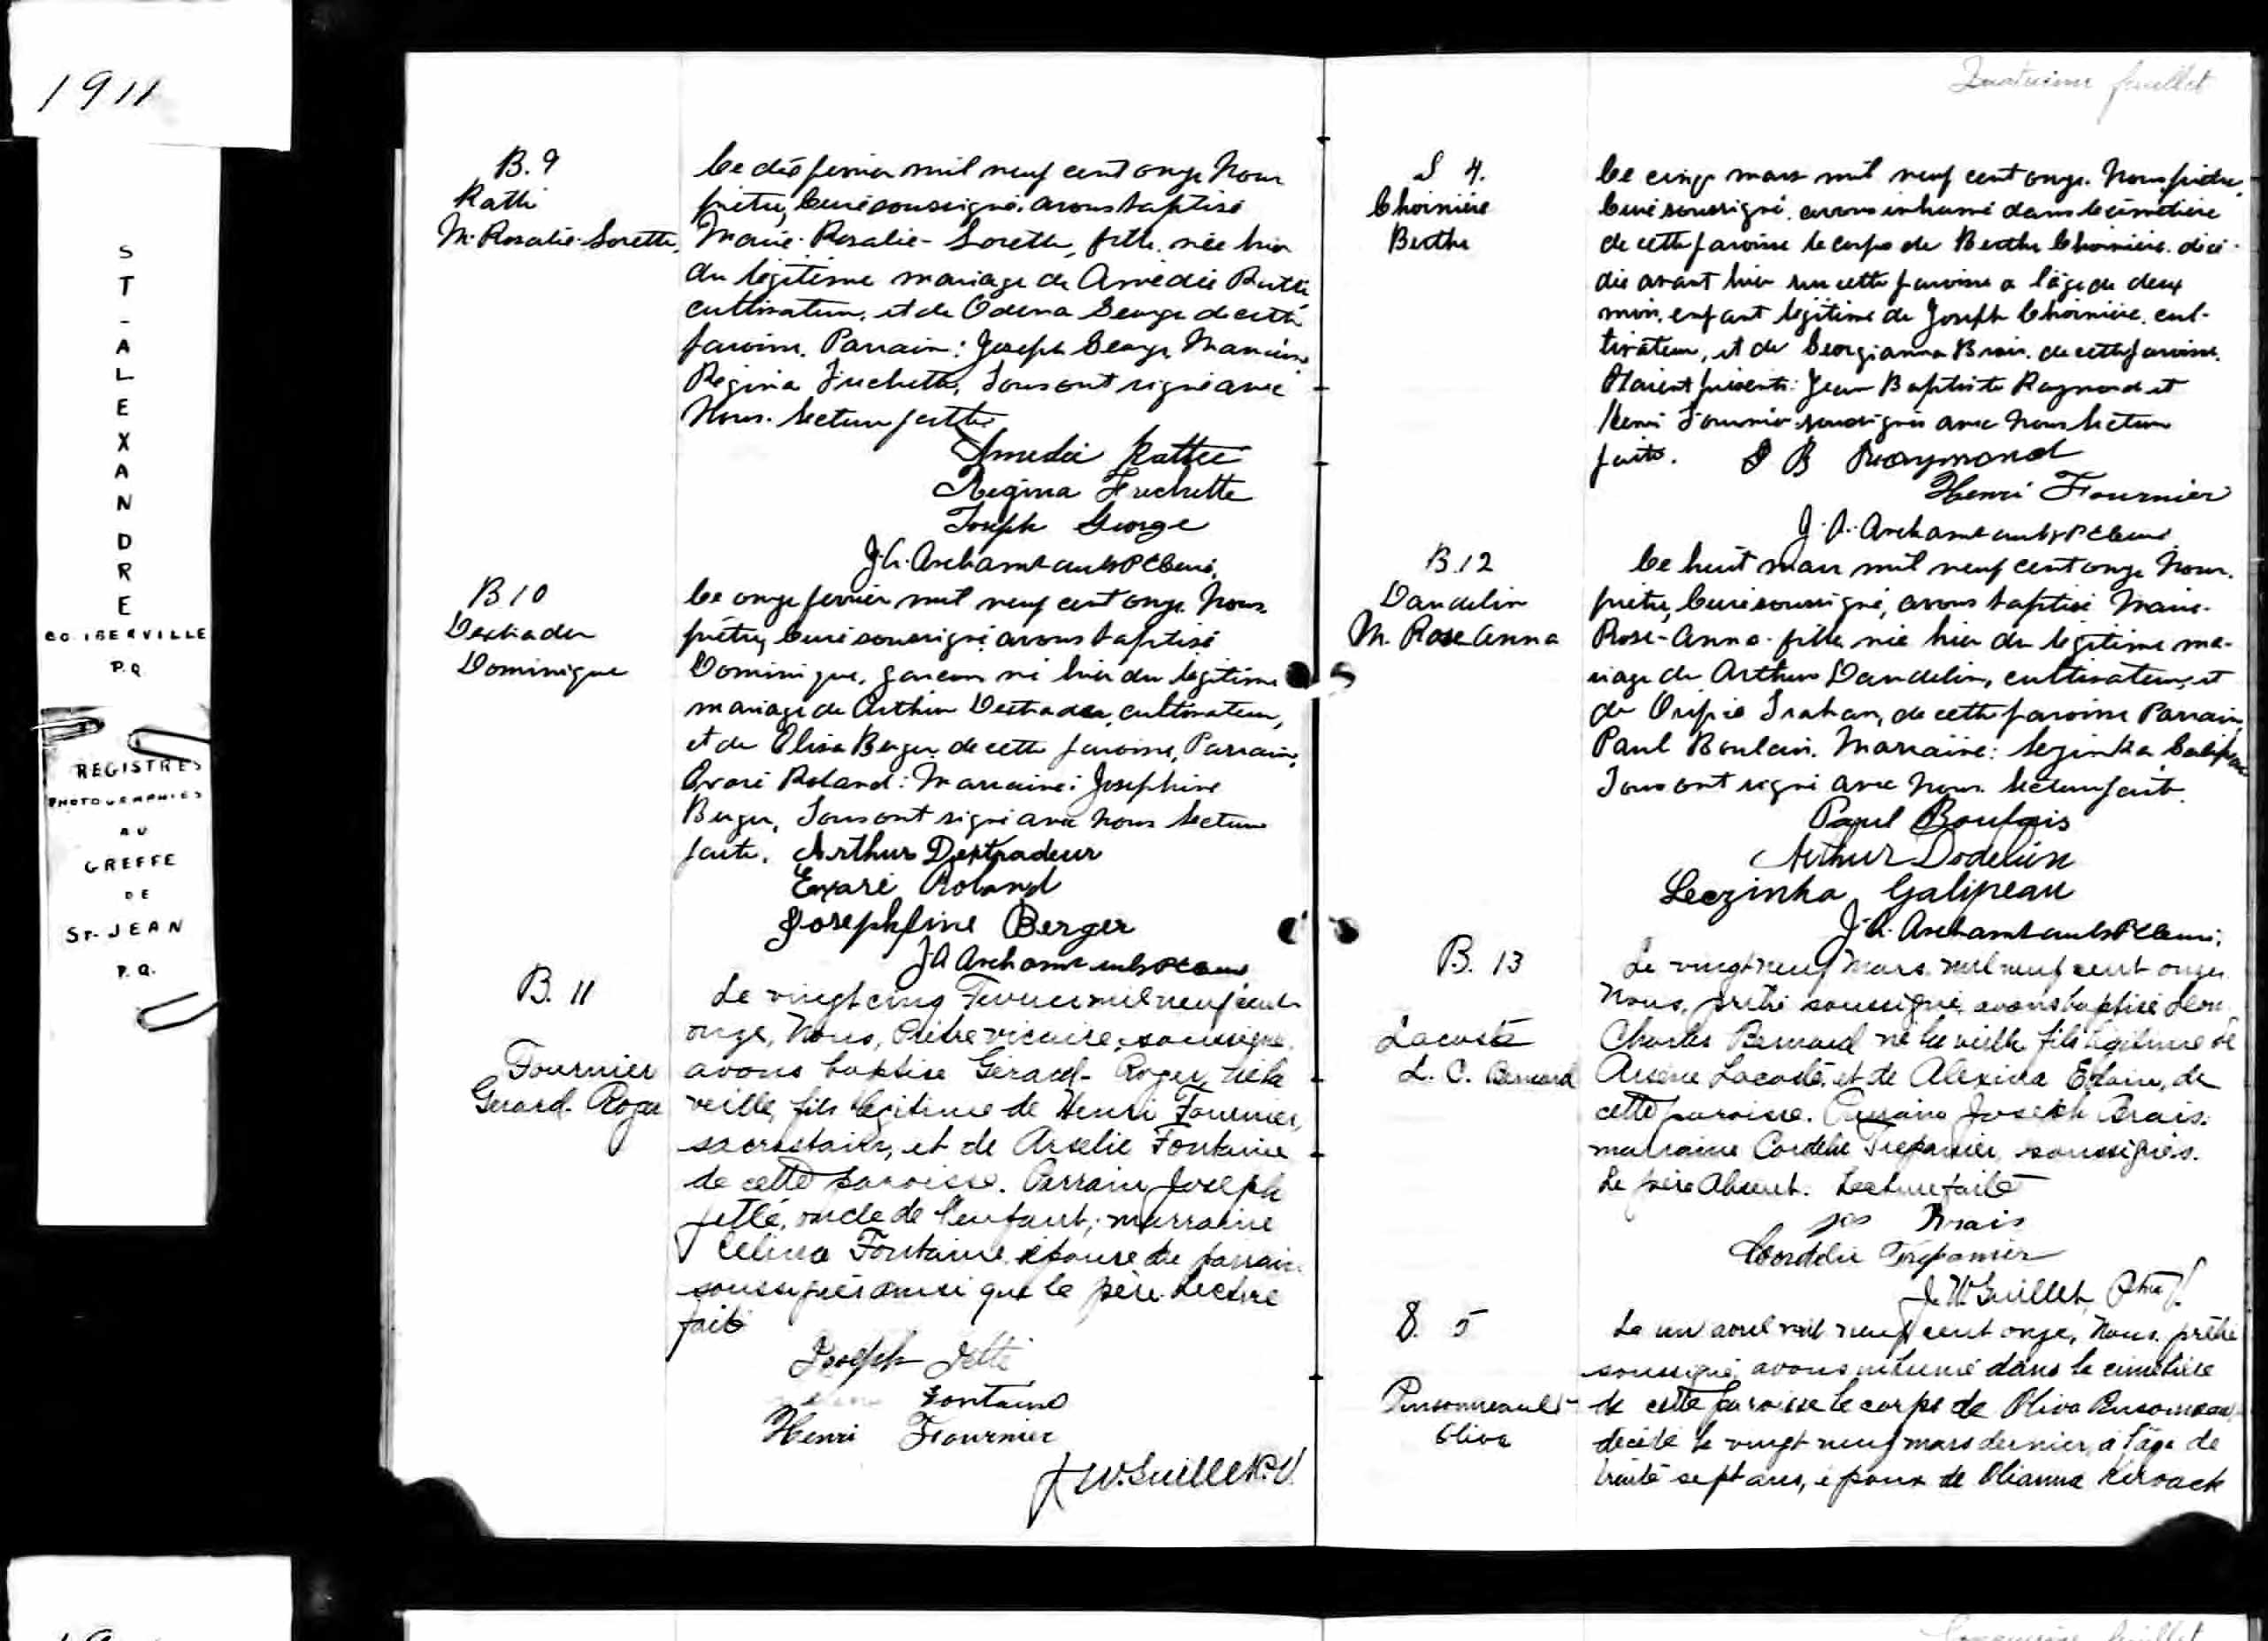 1911
ST-ALEXANDRE
CO. IBERVILLE
P.Q.
REGISTRES
PHOTOGRAPHIES
AU
GREFFE
DE
ST-JEAN
P.Q.
B. 9
Ratté
M. Rosalie-Lorette
Le dix février mil neuf cent onze Nous
prêtre, Curé soussigné, avons baptisé
Marie-Rosalie-Lorette, fille, née hier
du légitime mariage de Amédée Ratté
cultivateur, et de Odena George de cette
paroisse. Parrain: Joseph George, Marraine
Régina Frechette, Tous ont signé avec
Nous. Lecture faite
Amedée Rattee
Regina Frechette
Joseph George
J.A. Archambault Ptre Curé
B 10
Destrader
Dominique
Le onze février mil neuf cent onze. Nous
prêtre, Curé soussigné avons baptisé
Dominique, garçon né hier du légitime
mariage de Arthur Destrader, cultivateur,
et de Elisa Berger de cette paroisse, Parrain,
Roland: Marraine: Josephine
Berger, Tous ont signé avec Nous Lecture
faite. Arthur Destradeur
Roland
Josephine Berger
J A Archambault Ptre Curé
B. 11
Fournier
Gerard-Roger
Le vingt cinq Fevrier mil neuf cent
onze, Nous, Prêtre vicaire, soussigné
avons baptisé Gerard-Roger, né la
veille, fils légitime de Henri Fournier,
sacristain, et de Arselie Fontaine
de cette paroisse. Parrain Joseph
Jetté, oncle de l'enfant; marraine
Celina Fontaine épouse du parrain
soussignés ainsi que le père. Lecture
faite
Joseph Jetté
Fontaine
Henri Fournier
J W. Guillet P.V.
Quatrième feuillet
S 4.
Choinière
Berthe
Le cinq mars mil neuf cent onze. Nous, prêtre,
Curé soussigné, avons inhumé dans le cimetière
de cette paroisse le corps de Berthe Choinière, décé-
dée avant hier en cette paroisse a l'âge de deux
mois, enfant légitime de Joseph Choinière, cul-
tivateur, et de Georgianna Brais, de cette paroisse.
Etaient présents: Jean Baptiste Raymond et
Henri Fournier soussignés avec Nous Lecture
faite. J B Raymond
Henri Fournier
J. A. Archambault Ptre Curé
B. 12
Dandelin
M. Rose Anna
Le huit mars mil neuf cent onze Nous.
prêtre, Curé soussigné, avons baptisé Marie-
Rose-Anna-fille née hier du légitime ma-
riage de Arthur Dandelin, cultivateur, et
de Trahan, de cette paroisse Parrain
Paul Boulais. Marraine: Lezinka Galipeau
Tous ont signé avec Nous. Lecture faite.
Paul Boulais
Arthur Dodelin
Leczinka Galipeau
J A. Archambault Ptre Curé.
B. 13
Lacoste
L. C. Bernard
Le vingt neuf Mars mil neuf cent onze.
Nous, prêtre soussigné, avons baptisé
Charles Bernard né la veille fils légitime de
Arsène Lacoste, et de Alexina de
cette paroisse. Parrain Joseph Brais.
marraine Cordelie Trepanier, soussignés.
Le père Absent. Lecture faite
Jos Brais
Cordélie Trépanier
J. W Guillet, Ptre V.
S. 5
Pinsonneault
Oliva
Le un avril mil neuf cent onze, Nous, prêtre
soussigné, avons inhumé dans le cimetière
de cette paroisse le corps de Oliva
décédé le vingt neuf mars dernier, à l'âge de
trente sept ans, époux de Olianna Kirouack